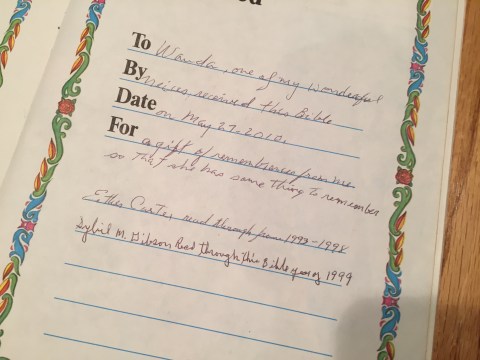 To Wanda, one of my wonderful
By Nieces received this Bible
Date on May 27, 2010,
For a gift of remembrance from me
so that she has some thing to remember
Esther Carter read through from 1993-1998
Sybil M. Gibson Read through this Bible year of 1999